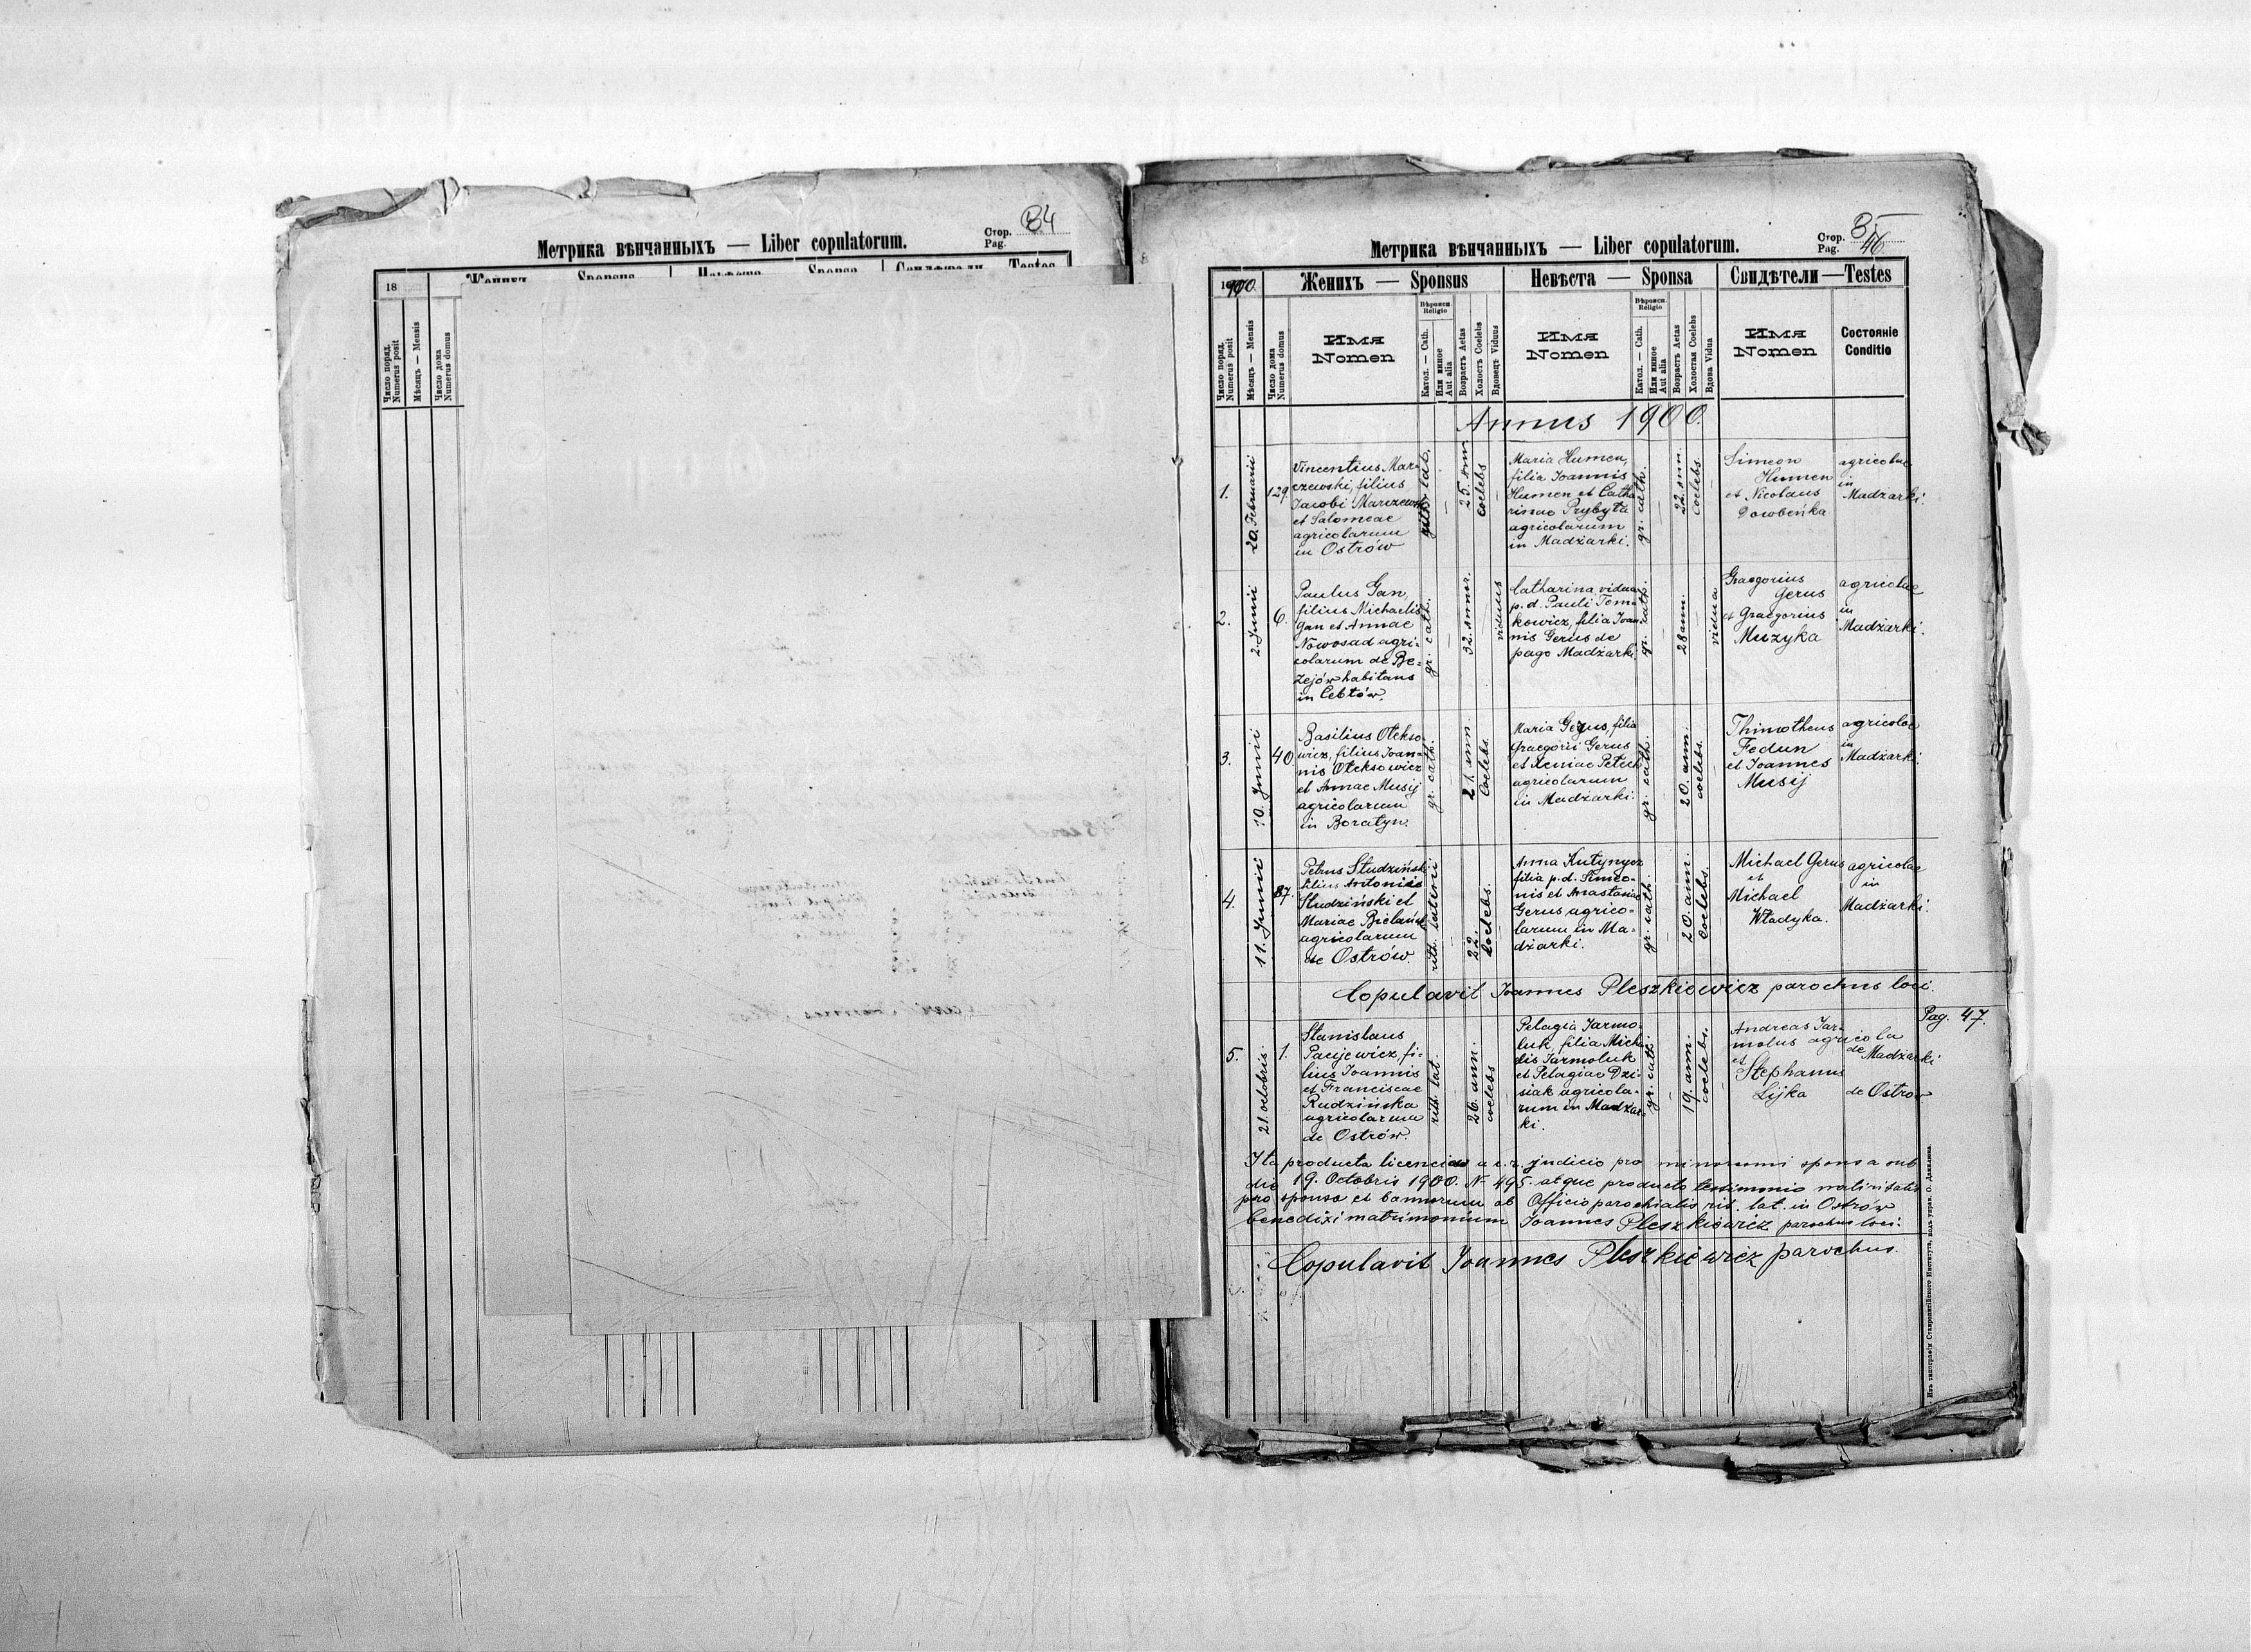 Стор. 34
Pag.
Метрика вѣнчанныхъ — Liber copulatorum.
18
Женихъ Sponsus Невѣста Sponsa Свидѣтели Testes
Число поряд.
Numerus posit
Мѣсяцъ — Mensis
Число дома
Numerus domus
Стор. 35
Pag. 46
Метрика вѣнчанныхъ — Liber copulatorum.
1900.
Женихъ — Sponsus
Невѣста — Sponsa
Свидѣтели — Testes
Число поряд.
Numerus posit
Мѣсяцъ — Mensis
Число дома
Numerus domus
Имя
Nomen
Вѣроисп.
Religio
Катол. — Cath.
Или инное
Aut alia
Возрастъ Aetas
Холостъ Coelebs
Вдовецъ Viduus
Имя
Nomen
Вѣроисп.
Religio
Катол. — Cath.
Или инное
Aut alia
Возрастъ Aetas
Холостая Coelebs
Вдова Vidua
Имя
Nomen
Состояніе
Conditio
Annus 1900.
1.
20. Februarii
129.
Vincentius Mar-
czewski, filius
Jacobi Marczewski
et Salomeae
agricolarum
in Ostrów
rit. lat.
25. ann
coelebs
Maria Humen,
filia Joannis
Humen et Catha
rinae Prybyła
agricolarum
in Madżarki.
gr. cath.
22. ann.
coelebs.
Simeon
Humen
et Nicolaus
Dowbeńka
agricolae
in
Madżarki.
2.
2. Junii
6.
Paulus Gan,
filius Michaelis
Gan et Annae
Nowosad agri-
colarum de Be-
zejów habitans
in Cebłów.
gr. cath.
32. annor.
viduus
Catharina, vidua
p. d. Pauli Tem-
kowicz, filia Joan-
nis Gerus de
pago Madżarki.
gr. cath.
28 ann.
vidua
Graegorius
Gerus
et Graegorius
Muzyka
agricolae
in
Madżarki.
3.
10. Junii
40
Basilius Olekso-
wicz, filius Joan-
nis Oleksowicz
et Annae Musij
agricolarum
in Boratyn.
gr. cath.
21. ann.
Coelebs.
Maria Gerus, filia
Graegorii Gerus
et Xeniae Petech
agricolarum
in Madżarki.
gr. cath.
20. ann.
coelebs.
Thimotheus
Fedun
et Joannes
Musij
agricolae
in
Madżarki.
4.
11. Junii
87.
Petrus Studziński
filius Antonii
Studziński et
Mariae Bielańsk
agricolarum
de Ostrów.
rit. latini
22.
coelebs.
Anna Kutynycz
filia p. d. Simeo-
nis et Anastasiae
Gerus agrico-
larum in Ma-
dżarki.
gr. cath.
20. ann.
Coelebs.
Michael Gerus
et
Michael
Władyka.
agricolae
in
Madżarki.
Copulavit Joannes Pleszkiewicz parochus loci.
Pag. 47.
5.
21. octobris.
1.
Stanislaus
Pacyjewicz, fi-
lius Joannis
et Franciscae
Rudzińska
agricolarum
de Ostrów.
rit. lat.
26. ann.
coelebs
Pelagia Jarmo-
luk, filia Micha
elis Jarmoluk
et Pelagiae Dzi-
siak agricola-
rum in Madżar-
ki.
gr. cath.
19. ann.
coelebs.
Andreas Jar-
molus agricola
et de Madżarki
Stephanus
Lijka de Ostrów
Ita producta licencia a c. r. judicio pro minorenni sponsa sub
die 19. Octobris 1900. N. 495. atque producto testimonio nativitatis
pro sponso et bannorum ab Officio parochialis rit. lat. in Ostrów
benedixi matrimonium Joannes Pleszkiewicz parochus loci.
Copulavit Joannes Pleszkiewicz parochus.
Изъ типографіи Ставропигійского Института, подъ управ. О. Данилюка.